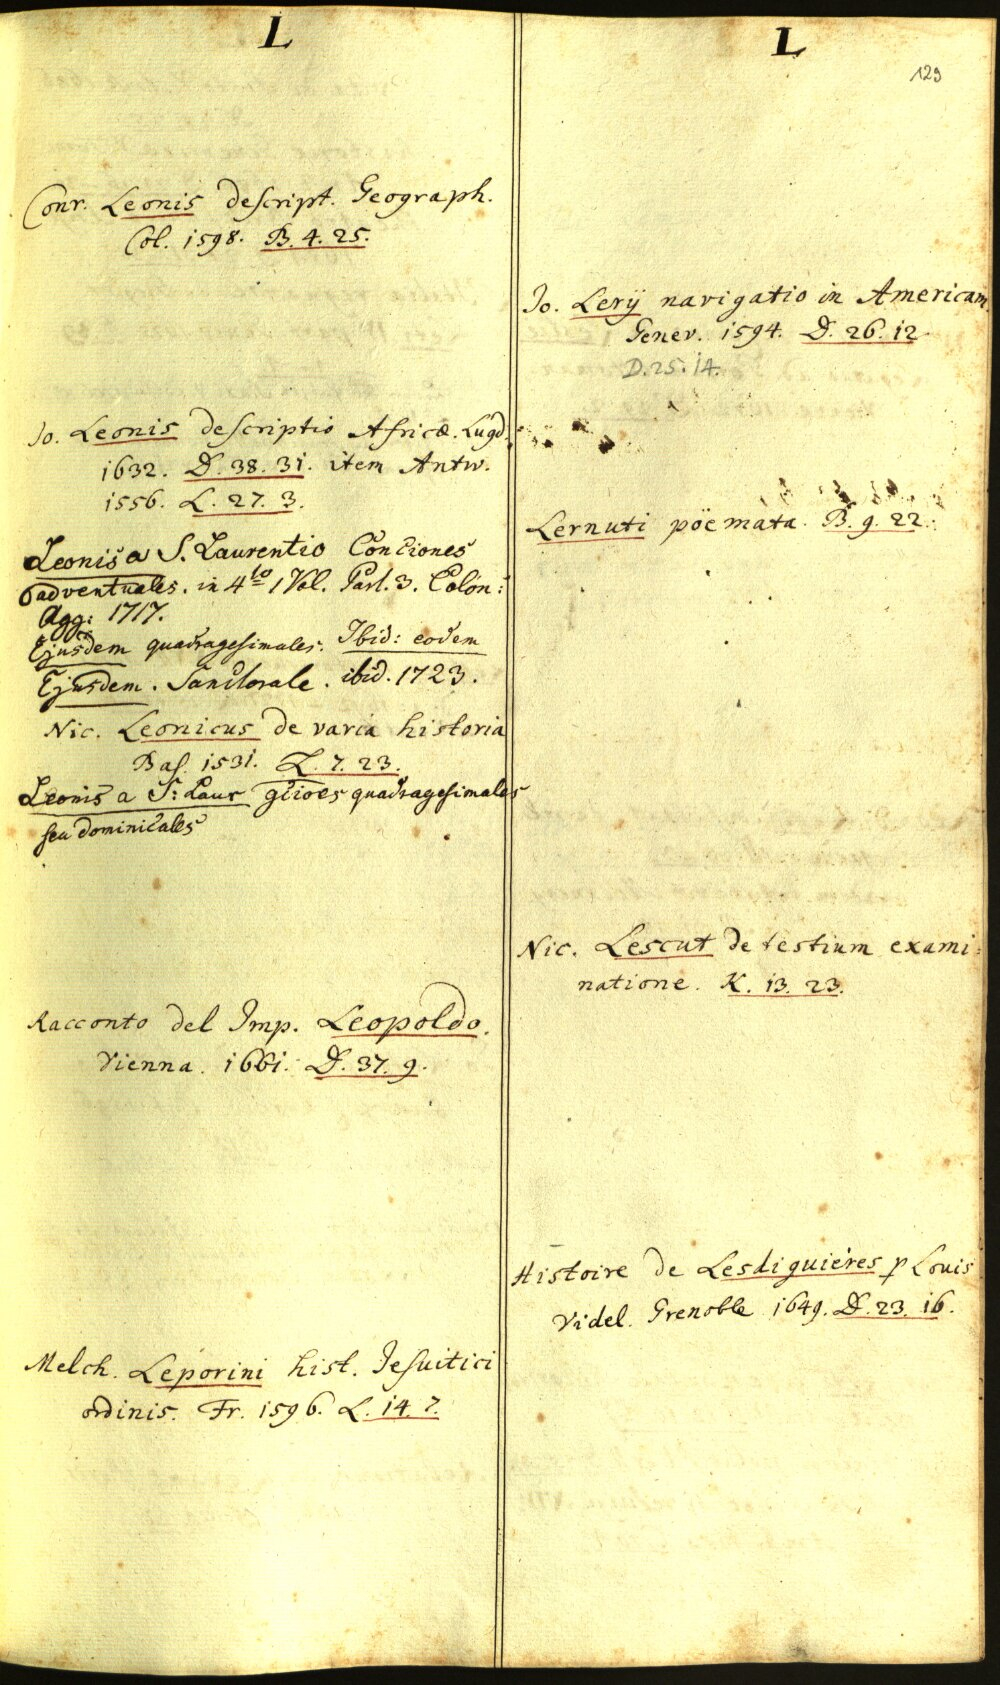 L
Conr. Leonis descript. Geograph.
Col. 1598. B. 4. 25.
Jo. Leonis descriptio Africæ. Lugd.
1632. D. 38. 31. item Antw.
1556. L. 27. 3.
Leonis a S. Laurentio Conciones
adventuales. in 4to 1 Vol. Part. 3. Colon:
Agg: 1717.
Ejusdem quadragesimales. Ibid: eodem
Ejusdem. Sanctorale. ibid. 1723.
Nic. Leonicus de varia historia
Bas. 1531. L. 7. 23.
Leonis a S: Laur quadragesimales
seu dominicales
Racconto del Imp. Leopoldo.
Vienna. 1661. D. 37. 9.
Melch. Leporini hist. Jesuitici
ordinis. Fr. 1596. L. 14. 7.
L
129
Jo. Lerÿ navigatio in Americam
Genev. 1594. D. 26. 12
D. 25. 14.
Lernuti pöemata. B. 9. 22.
Nic. Lescut de testium exami:
natione. K. 13. 23.
Histoire de Lesdiguiéres p Louis
Videl. Grenoble 1649. D. 23. 16.